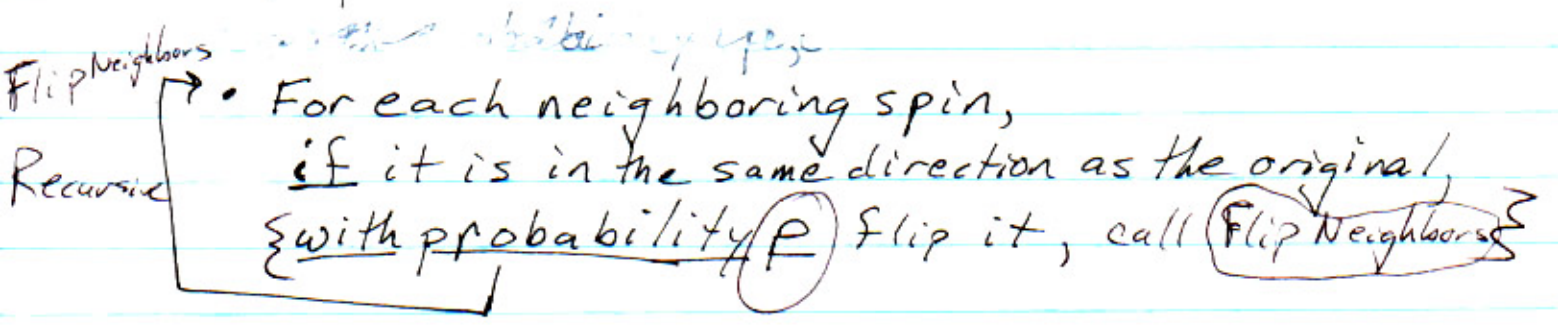 FlipNeighbors
• For each neighboring spin,
Recursive
if it is in the same direction as the original,
{with probability p flip it, call FlipNeighbors}